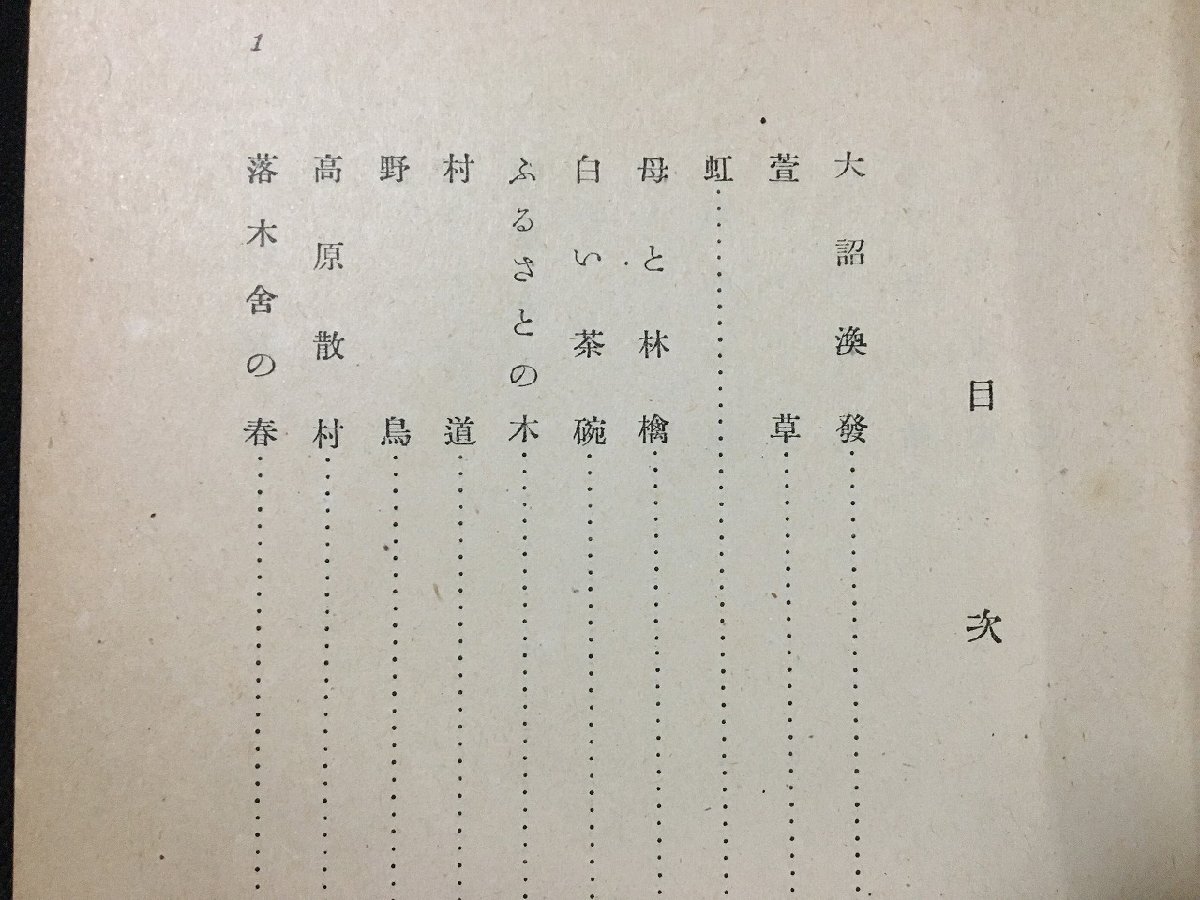 目次
大詔渙發
萱草
虹
母と林檎
白い茶碗
ふるさとの木
村道
野鳥
高原散村
落木舍の春
1